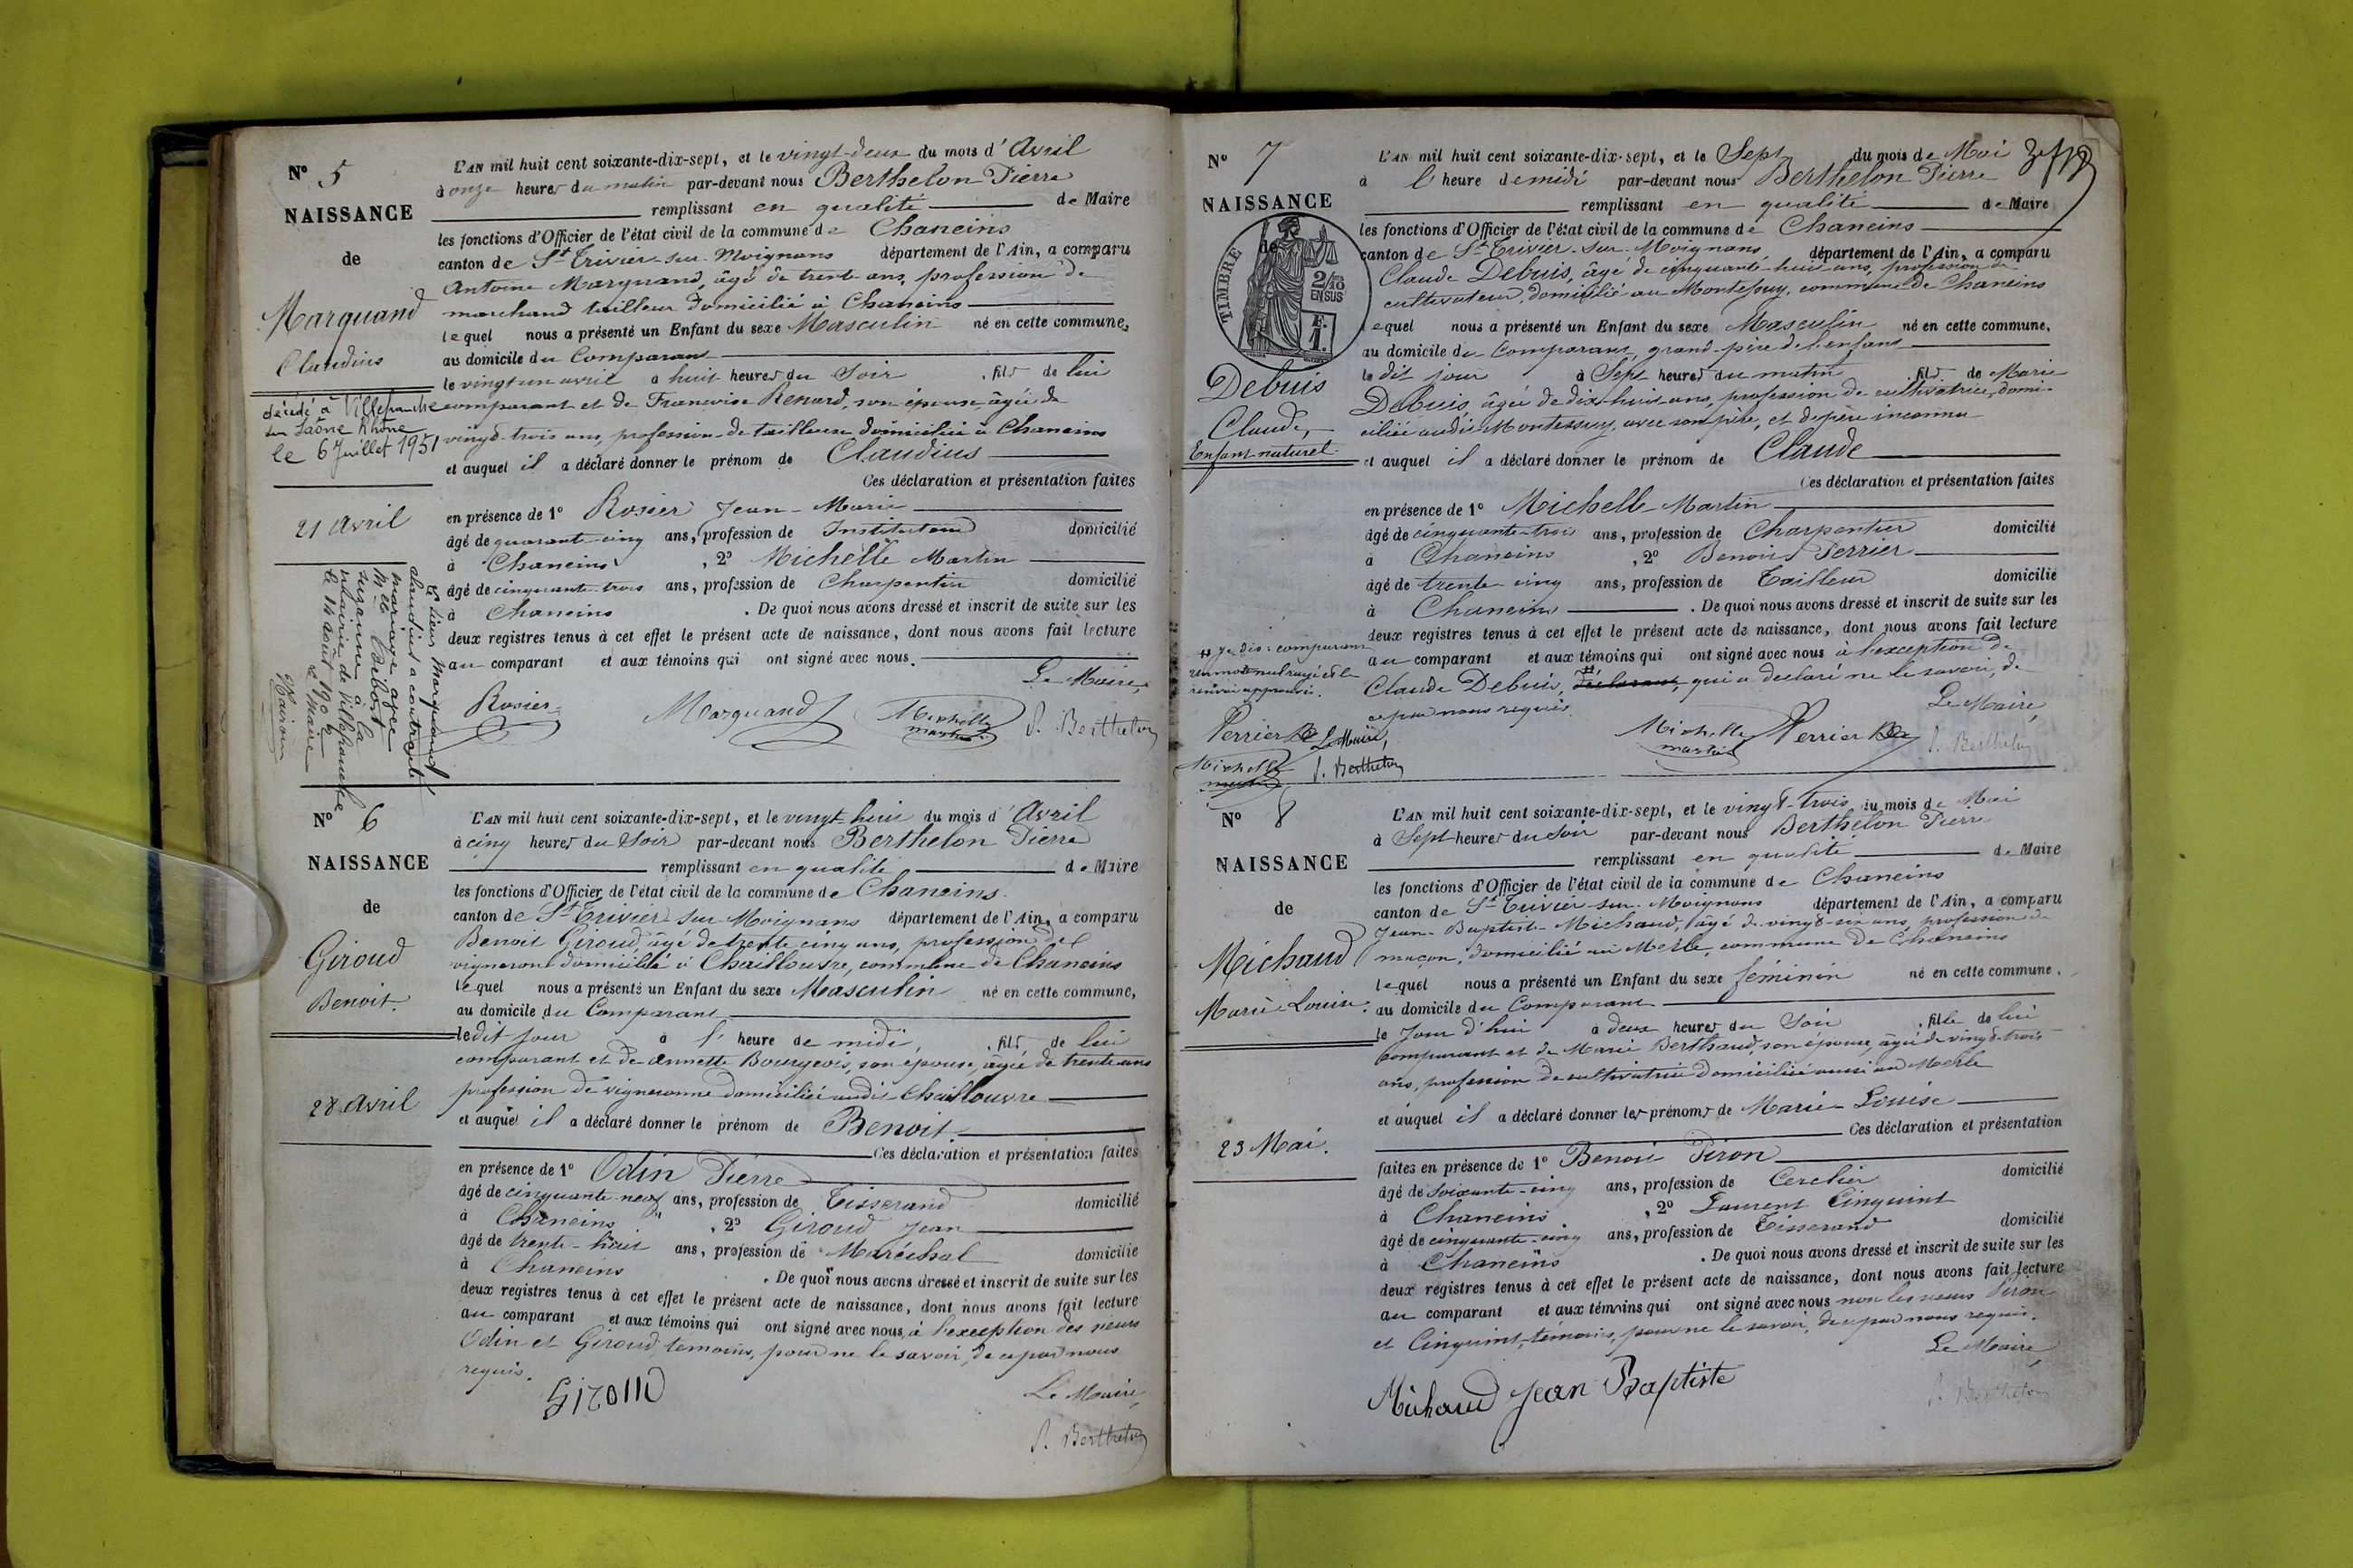 N° 5
NAISSANCE
de
Marquand
Claudius
décédé à Villefranche
sur Saône Rhône
le 6 Juillet 1951
21 Avril
Le sieur Marquand
claudius a contracté
mariage avec
Melle Debost
suzanne à la
mairie de Villefranche
le 14 août 190
Le Maire
L'AN mil huit cent soixante-dix-sept, et le vingt-deux du mois d'Avril
à onze heures du matin par-devant nous Berthelon Pierre
remplissant en qualité de Maire
les fonctions d'Officier de l'état civil de la commune de Chaneins
canton de St Trivier-sur-Moignans département de l'Ain, a comparu
Antoine Marquand, âgé de trente ans, profession de
marchand tailleur domicilié à Chaneins
lequel nous a présenté un Enfant du sexe Masculin né en cette commune,
au domicile du Comparant
le vingt un avril à huit heures du Soir , fils de lui
comparant et de Françoise Renard, son épouse, âgée de
vingt-trois ans, profession de tailleuse domiciliée à Chaneins
et auquel il a déclaré donner le prénom de Claudius
Ces déclaration et présentation faites
en présence de 1° Rosier Jean-Marie
âgé de quarante-cinq ans, profession de Instituteur domicilié
à Chaneins , 2° Michelle Martin
âgé de cinquante-trois ans, profession de Charpentier domicilié
à Chaneins . De quoi nous avons dressé et inscrit de suite sur les
deux registres tenus à cet effet le présent acte de naissance, dont nous avons fait lecture
au comparant et aux témoins qui ont signé avec nous.
Le Maire,
Rosier Marquand Michelle martin P. Berthelon
N° 6
NAISSANCE
de
Giroud
Benoit
28 Avril
L'AN mil huit cent soixante-dix-sept, et le vingt-huit du mois d'Avril
à cinq heures du Soir par-devant nous Berthelon Pierre
remplissant en qualité de Maire
les fonctions d'Officier de l'état civil de la commune de Chaneins
canton de St Trivier sur Moignans département de l'Ain, a comparu
Benoit Giroud, âgé de trente cinq ans, profession de
vigneron domicilié à Chaillouvre, commune de Chaneins
lequel nous a présenté un Enfant du sexe Masculin né en cette commune,
au domicile du Comparant
ledit jour à l'heure de midi, , fils de lui
comparant et de Annette Bourgeois, son épouse, âgée de trente ans
profession de vigneronne domiciliée audit Chaillouvre
et auquel il a déclaré donner le prénom de Benoit.
Ces déclaration et présentation faites
en présence de 1° Odin Pierre
âgé de cinquante-neuf ans, profession de Tisserand domicilié
à Chaneins , 2° Giroud Jean
âgé de trente-huit ans, profession de Maréchal domicilié
à Chaneins . De quoi nous avons dressé et inscrit de suite sur les
deux registres tenus à cet effet le présent acte de naissance, dont nous avons fait lecture
au comparant et aux témoins qui ont signé avec nous, à l'exception des sieurs
Odin et Giroud, témoins, pour ne le savoir, de ce par nous
requis.
Giroud
Le Maire,
P. Berthelon
N° 7
NAISSANCE
de
TIMBRE
2/10
EN SUS
F.
1.
Debuis
Claude,
Enfant naturel
# Je dis: comparant
un mot nul rayé et le
renvoi approuvé.
Perrier Le Maire,
Michelle martin P. Berthelon
L'AN mil huit cent soixante-dix-sept, et le Sept du mois de Mai
à l'heure de midi par-devant nous Berthelon Pierre
remplissant en qualité de Maire
les fonctions d'Officier de l'état civil de la commune de Chaneins
canton de St Trivier-sur-Moignans département de l'Ain, a comparu
Claude Debuis, âgé de cinquante-huit ans, profession de
cultivateur, domicilié au Montessuy, commune de Chaneins
lequel nous a présenté un Enfant du sexe Masculin né en cette commune,
au domicile du Comparant, grand-père de l'enfant
le dit jour à Sept heures du matin fils de Marie
Debuis, âgée de dix-huit ans, profession de cultivatrice, domi-
ciliée audit Montessuy, avec son père, et de père inconnu
et auquel il a déclaré donner le prénom de Claude
Ces déclaration et présentation faites
en présence de 1° Michelle Martin
âgé de cinquante-trois ans, profession de Charpentier domicilié
à Chaneins , 2° Benoit Perrier
âgé de trente-cinq ans, profession de Tailleur domicilié
à Chaneins . De quoi nous avons dressé et inscrit de suite sur les
deux registres tenus à cet effet le présent acte de naissance, dont nous avons fait lecture
au comparant et aux témoins qui ont signé avec nous à l'exception de
Claude Debuis, déclarant, # qui a déclaré ne le savoir, de
ce par nous requis.
Le Maire,
Michelle martin Perrier P. Berthelon
N° 8
NAISSANCE
de
Michaud
Marie-Louise.
23 Mai.
L'AN mil huit cent soixante-dix-sept, et le vingt-trois du mois de Mai
à Sept heures du Soir par-devant nous Berthelon Pierre
remplissant en qualité de Maire
les fonctions d'Officier de l'état civil de la commune de Chaneins
canton de St Trivier-sur-Moignans département de l'Ain, a comparu
Jean-Baptiste Michaud, âgé de vingt-six ans, profession de
maçon, domicilié au Merle, commune de Chaneins
lequel nous a présenté un Enfant du sexe féminin né en cette commune,
au domicile du Comparant
le Jour d'hui à deux heures du Soir , fille de lui
comparant et de Marie Berthaud, son épouse, âgée de vingt-trois
ans, profession de cultivatrice domiciliée aussi au Merle
et auquel il a déclaré donner les prénoms de Marie-Louise
Ces déclaration et présentation
faites en présence de 1° Benoit Piron
âgé de soixante-cinq ans, profession de Cerclier domicilié
à Chaneins , 2° Laurent Cinquint
âgé de cinquante-cinq ans, profession de Tisserand domicilié
à Chaneins . De quoi nous avons dressé et inscrit de suite sur les
deux registres tenus à cet effet le présent acte de naissance, dont nous avons fait lecture
au comparant et aux témoins qui ont signé avec nous non les sieurs Piron
et Cinquint, témoins, pour ne le savoir, de ce par nous requis.
Le Maire,
Michaud Jean Baptiste
P. Berthelon